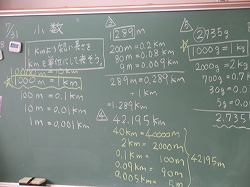 7/31 小数
1kmより短い長さを
kmを単位にして表そう。
1000m=1km
100m=0.1km
10m=0.01km
1m=0.001km
③ 1289m
200m=0.2km
80m=0.08km
9m=0.009km
289m=0.289km
+1km
1.289km
④ 42.195km
40km=40000m
2km=2000m
0.1km=100m
0.09km=90m
0.005km=5m
42195m
2735g
1000g=1kg
2000g=2kg
700g=0.7
30g=0.0
5g=0.0
2.735